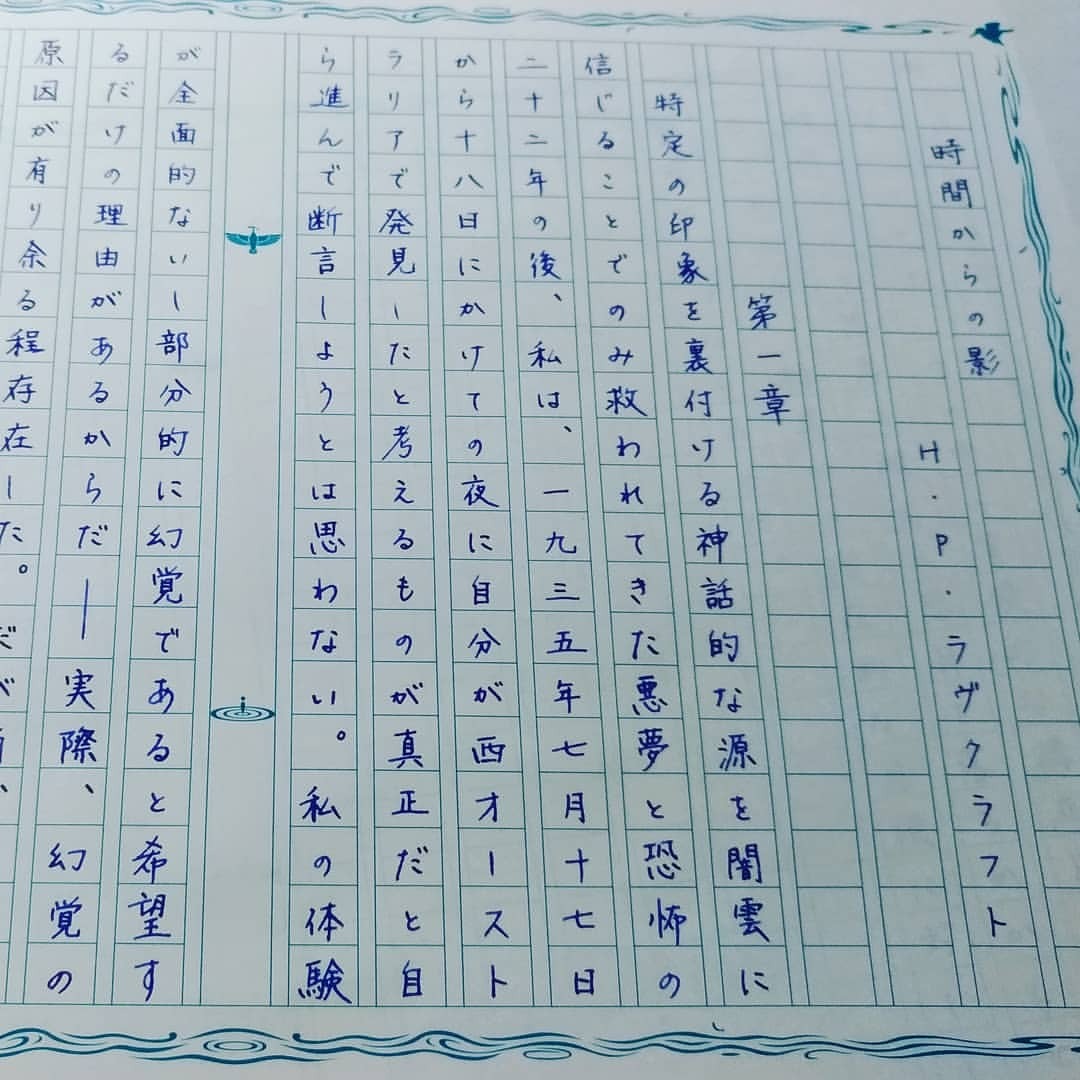 時間からの影
H・P・ラヴクラフト
第一章
特定の印象を裏付ける神話的な源を闇雲に
信じることでのみ救われてきた悪夢と恐怖の
二十二年の後、私は、一九三五年七月十七日
から十八日にかけての夜に自分が西オースト
ラリアで発見したと考えるものが真正だと自
ら進んで断言しようとは思わない。私の体験
が全面的ないし部分的に幻覚であると希望す
るだけの理由があるからだ――実際、幻覚の
原因が有り余る程存在した。